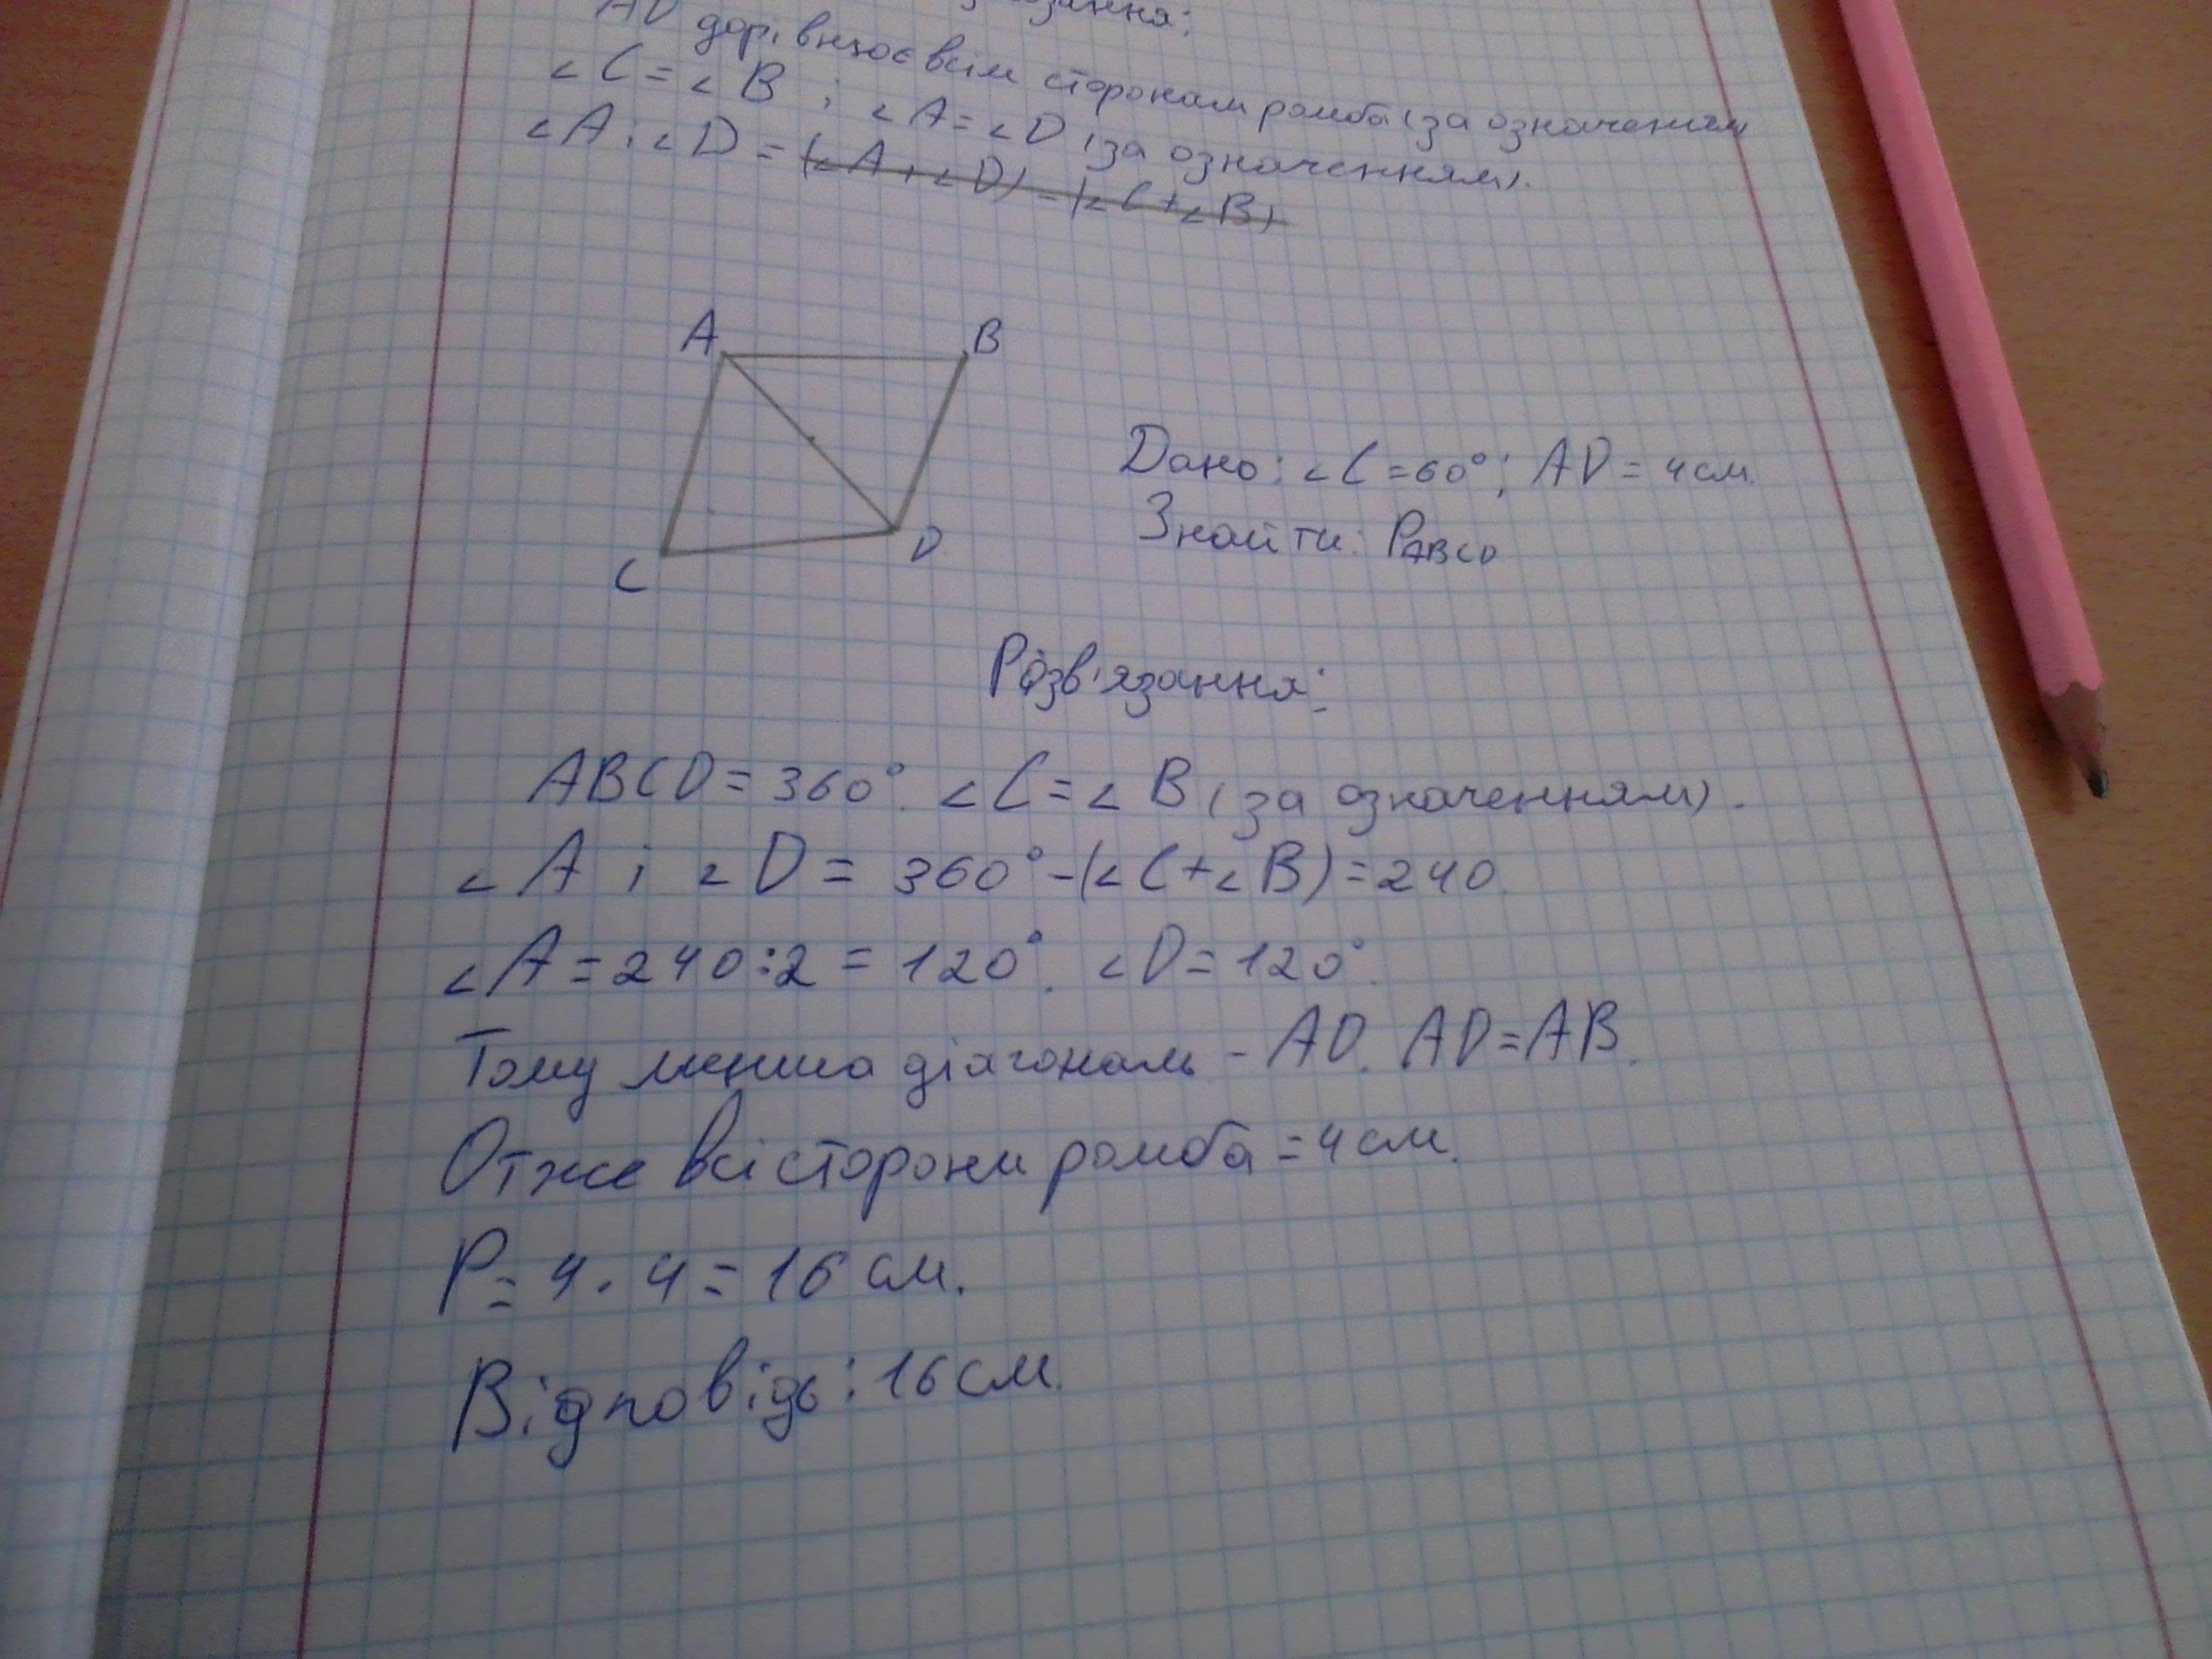 AD
дорівнює всім сторонам ромба (за означенням)
∠C = ∠B ; ∠A = ∠D (за означенням).
∠A і ∠D = (∠A + ∠D) - (∠C + ∠B)
A
B
C
D
Дано: ∠C = 60°; AD = 4 см.
Знайти: PABCD
Розв'язання:
ABCD = 360°. ∠C = ∠B (за означенням).
∠A і ∠D = 360° - (∠C + ∠B) = 240.
∠A = 240 : 2 = 120°. ∠D = 120°.
Тому менша діагональ - AD. AD = AB.
Отже всі сторони ромба = 4 см.
P = 4 · 4 = 16 см.
Відповідь: 16 см.